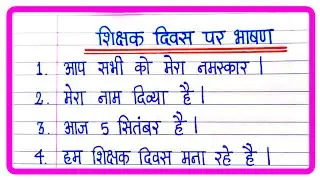 शिक्षक दिवस पर भाषण
1. आप सभी को मेरा नमस्कार ।
2. मेरा नाम दिव्या है ।
3. आज 5 सितंबर है ।
4. हम शिक्षक दिवस मना रहे है ।